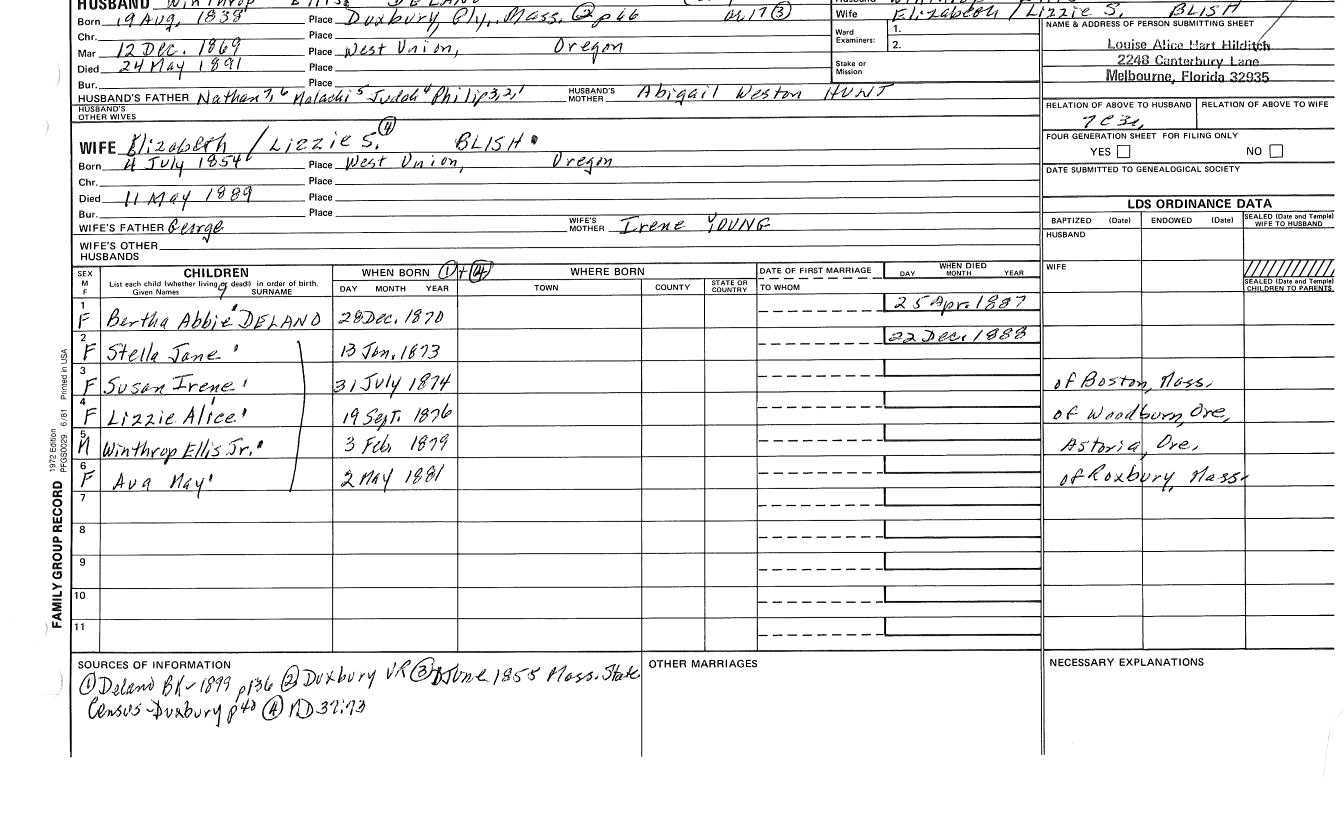 HUSBAND Winthrop Ellis DELAND
Born 19 Aug. 1838 Place Duxbury, Ply., Mass. ② p66 al. 17 ③
Chr. Place
Mar 12 Dec. 1869 Place West Union, Oregon
Died 24 May 1891 Place
Bur. Place
HUSBAND'S FATHER Nathan 7,6 Malachi 5 Judah 4 Philip 3,2,1 HUSBAND'S MOTHER Abigail Weston HUNT
HUSBAND'S OTHER WIVES
Wife Elizabeth / Lizzie S. BLISH
Ward Examiners: 1.
2.
Stake or Mission
NAME & ADDRESS OF PERSON SUBMITTING SHEET
Louise Alice Hart Hilditch
2248 Canterbury Lane
Melbourne, Florida 32935
RELATION OF ABOVE TO HUSBAND RELATION OF ABOVE TO WIFE
7C3r,
FOUR GENERATION SHEET FOR FILING ONLY
YES NO
DATE SUBMITTED TO GENEALOGICAL SOCIETY
WIFE Elizabeth / Lizzie S. ④ BLISH
Born 4 July 1854 Place West Union, Oregon
Chr. Place
Died 11 May 1889 Place
Bur. Place
WIFE'S FATHER George WIFE'S MOTHER Irene YOUNG
WIFE'S OTHER HUSBANDS
LDS ORDINANCE DATA
BAPTIZED (Date) ENDOWED (Date) SEALED (Date and Temple) WIFE TO HUSBAND
HUSBAND
WIFE
SEALED (Date and Temple) CHILDREN TO PARENTS
SEX M F CHILDREN WHEN BORN ①+④ WHERE BORN DATE OF FIRST MARRIAGE WHEN DIED
List each child (whether living or dead) in order of birth. Given Names SURNAME DAY MONTH YEAR TOWN COUNTY STATE OR COUNTRY TO WHOM DAY MONTH YEAR
1 F Bertha Abbie DELAND 28 Dec. 1870 25 Apr. 1887
2 F Stella Jane 13 Jan. 1873 22 Dec. 1888
3 F Susan Irene 31 July 1874 of Boston, Mass.
4 F Lizzie Alice 19 Sept. 1876 of Woodburn, Ore,
5 M Winthrop Ellis Jr. 3 Feb. 1879 Astoria, Ore,
6 F Ava May 2 May 1881 of Roxbury, Mass.
7
8
9
10
11
FAMILY GROUP RECORD 1972 Edition PFGS0029 6/81 Printed in USA
SOURCES OF INFORMATION
① Deland BK - 1899 p136 ② Duxbury VR ③ June 1855 Mass. State
Census - Duxbury p40 ④ MD 37:73
OTHER MARRIAGES
NECESSARY EXPLANATIONS